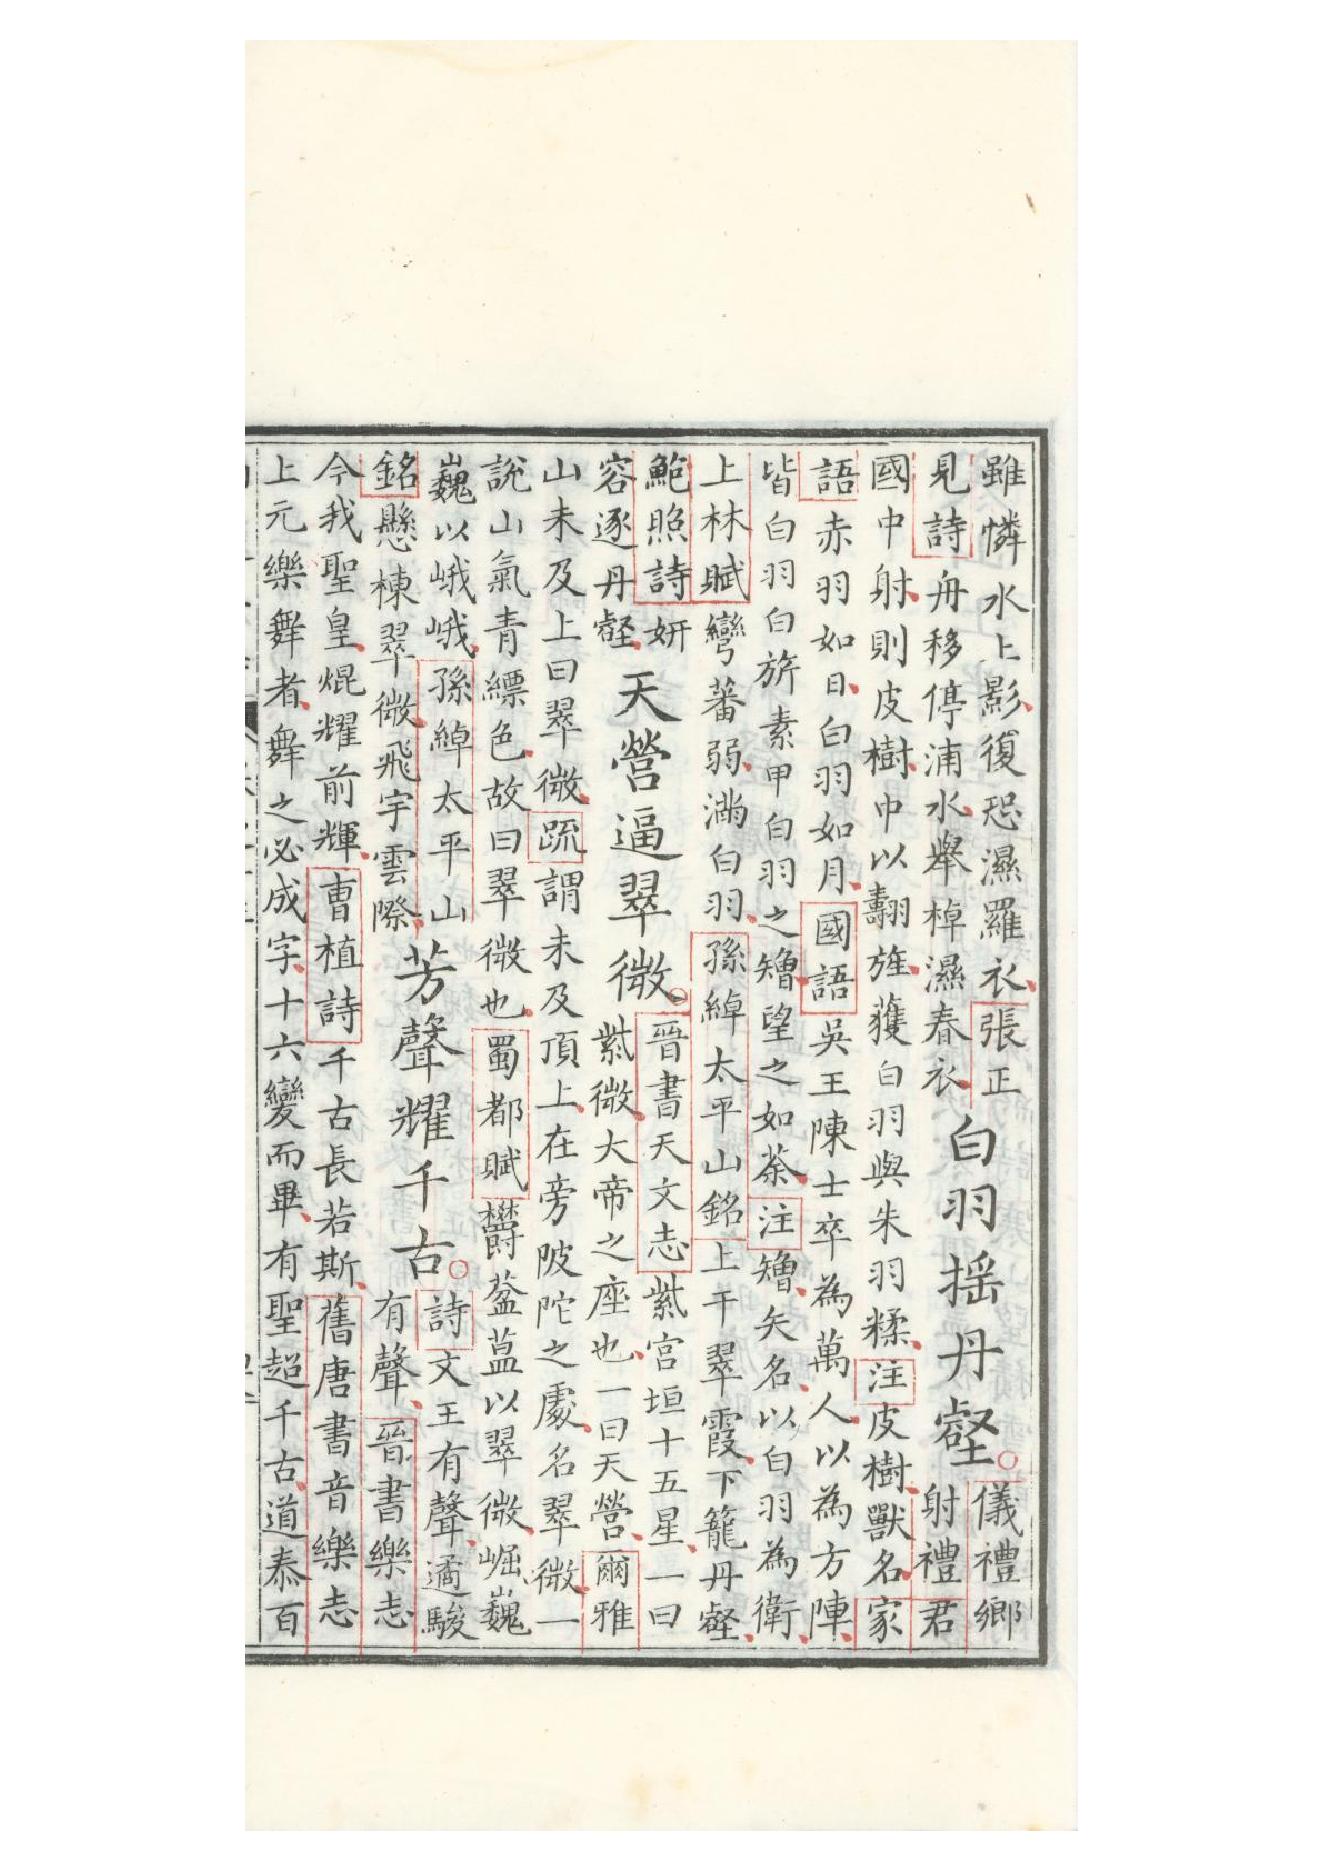 雖憐水上影復恐濕羅衣張正
見詩舟移停浦水舉棹濕春衣
白羽搖丹壑
儀禮鄉
射禮君
國中射則皮樹中以翿旌獲白羽與朱羽糅注皮樹獸名家
語赤羽如日白羽如月國語吳王陳士卒為萬人以為方陣
皆白羽白旂素甲白羽之矰望之如荼注矰矢名以白羽為衛
上林賦彎蕃弱滿白羽孫綽太平山銘上干翠霞下籠丹壑
鮑照詩妍
容逐丹壑
天營逼翠微
晉書天文志紫宮垣十五星一曰
紫微大帝之座也一曰天營爾雅
山未及上曰翠微疏謂未及頂上在旁陂陀之處名翠微一
說山氣青縹色故曰翠微也蜀都賦欝葐蒀以翠微崛巍
巍以峨峨孫綽太平山
銘懸棟翠微飛宇雲際
芳聲耀千古
詩文王有聲遹駿
有聲晉書樂志
今我聖皇焜耀前輝曹植詩千古長若斯舊唐書音樂志
上元樂舞者舞之必成字十六變而畢有聖超千古道泰百